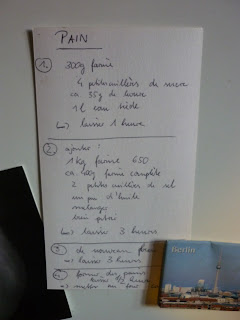 PAIN
1. 300g farine
4 petites cuillères de sucre
ca. 35g de levure
1 l eau tiède
↳ laisser 1 heure
2. ajouter :
1 kg farine 650
ca. 400g farine complète
2 petites cuillères de sel
un peu d'huile
mélanger
bien pétrir
↳ laisser 3 heures
3. de nouveau
↳ laisser 3 heures
4. former des pains
laisser 1/2 heure
↳ mettre au four
Berlin